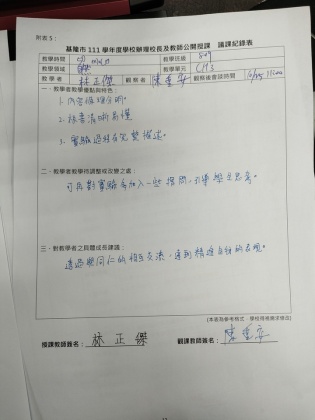 附表 5：
基隆市 111 學年度學校辦理校長及教師公開授課 議課紀錄表
教學時間 教學班級 809
教學領域 教學單元 CH3
教學者 林正傑 觀察者 陳重安 觀察後會談時間
一、教學者教學優點與特色：
1. 內容條理分明。
2. 板書清晰易懂
3. 實驗過程完整描述。
二、教學者教學待調整或改變之處：
可再對實驗多加入一些提問，引導學生思考。
三、對教學者之具體成長建議：
透過與同仁的相互交流，達到精進自我的表現。
(本表為參考格式，學校得視需求修改)
授課教師簽名： 林正傑 觀課教師簽名： 陳重安